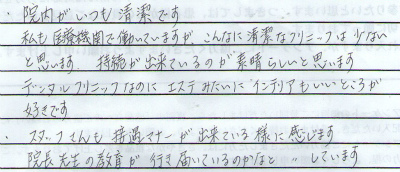 ・院内がいつも清潔です
私も医療機関で働いていますが、こんなに清潔なクリニックは少ない
と思います。持続が出来ているのが素晴らしいと思います
デンタルクリニックなのにエステみたいにインテリアもいいところが
好きです
・スタッフさんも接遇マナーが出来ている様に感じます
院長先生の教育が行き届いているのかなと 〃 しています